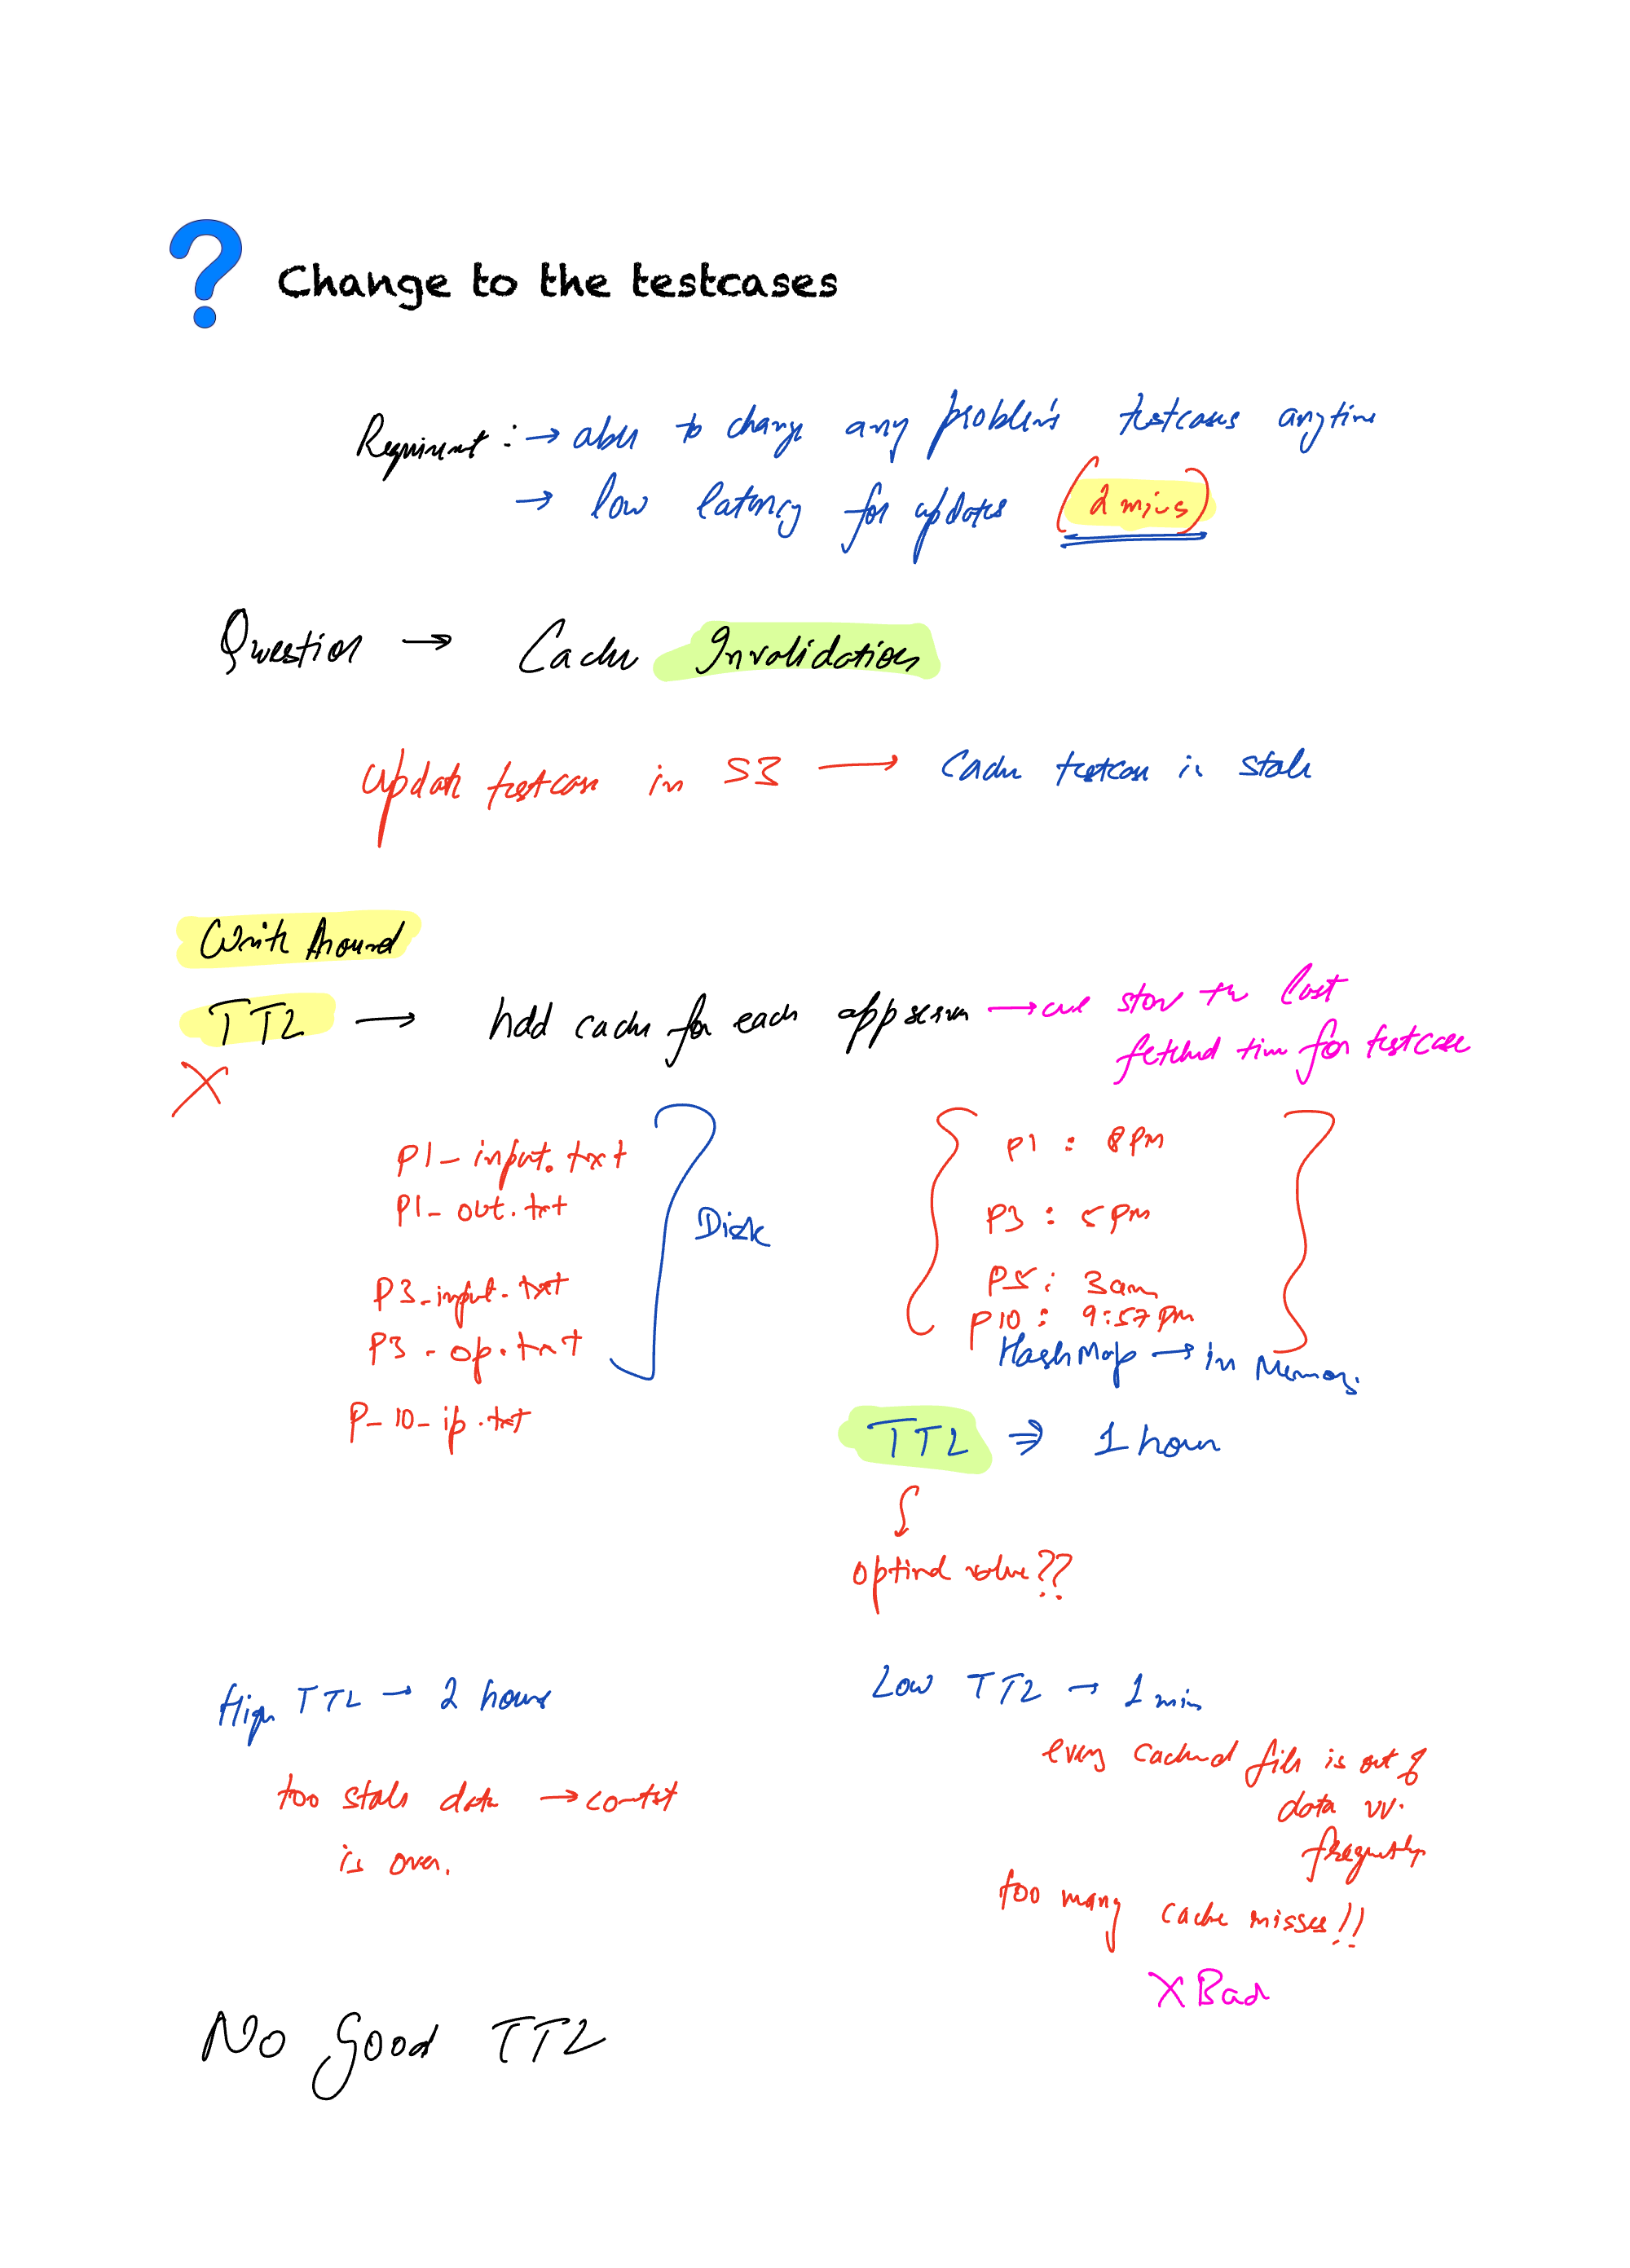 ? Change to the testcases
Requirement : → able to change any problem's testcases anytime
→ low latency for updates (2 mins)
Question → Cache Invalidation
Update testcase in S3 → Cache testcase is stale
Write Around
TTL → Add cache for each appserver → we store the last
fetched time for testcase
X
P1_input.txt
P1_out.txt
P3_input.txt
P3_op.txt
P_10_ip.txt
Disk
P1 : 8pm
P3 : 5pm
P5 : 3am
P10 : 9:57pm
HashMap → in Memory.
TTL ⇒ 1 hour
optimal value??
High TTL → 2 hours
too stale data → contest
is over.
Low TTL → 1 min
every cached file is out of
data vv.
frequently
too many cache misses!!
X Bad
No Good TTL